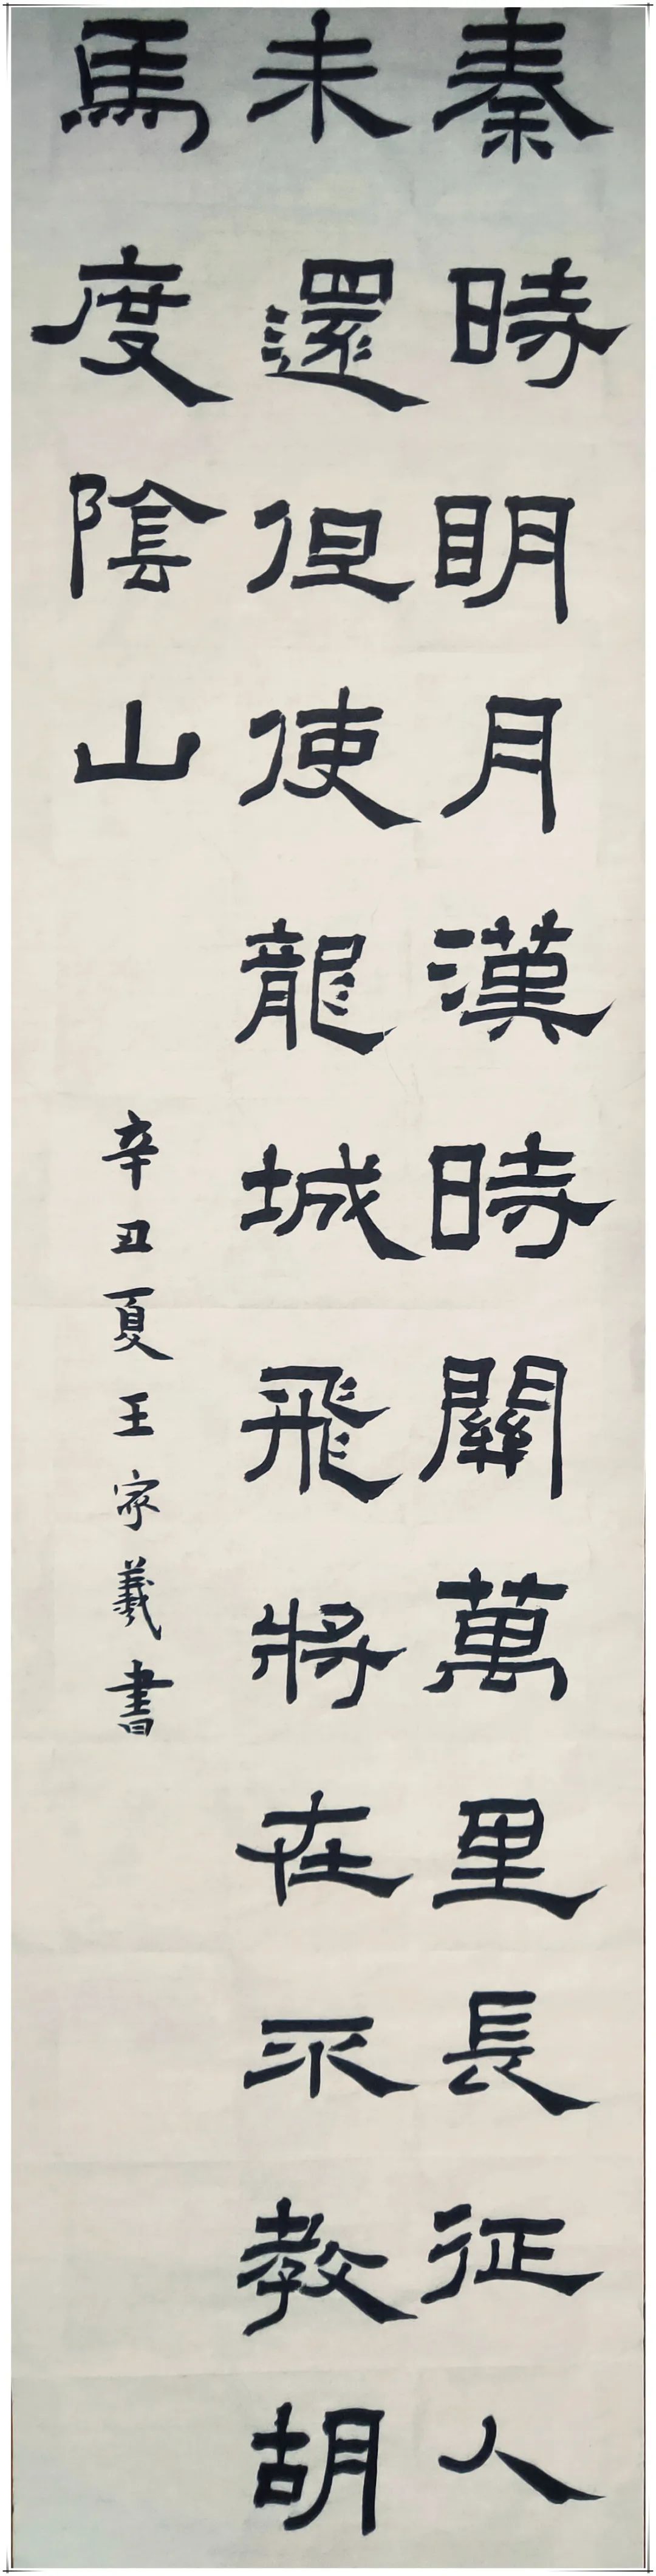 秦時明月漢時關萬里長征人
未還但使龍城飛將在不教胡
馬度陰山
辛丑夏王家羲書